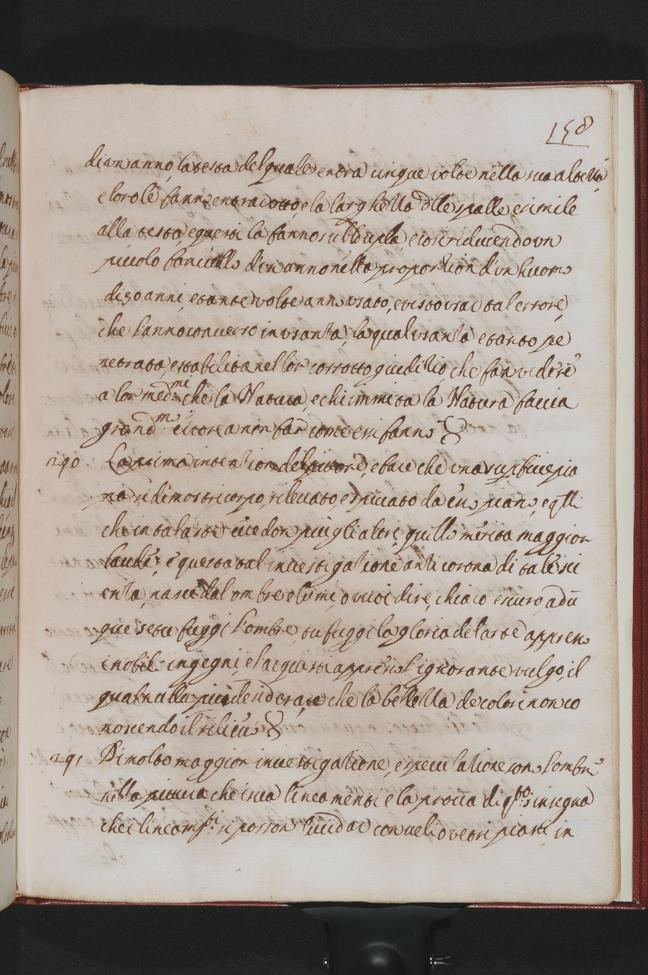 158
di un anno la testa del quale entra cinque volte nella sua altezza
e loro le fanno entra otto, e la larghezza delle spalle e simile
alla testa, e questi la fanno subdupla cioe riducendo un
piccolo fanciullo d'un anno nella proportion d'un huomo
di 30 anni, e tante volte anno usato, e visto usar tal errore,
che l'anno converso in usanza, la qual usanza e tanto pe
netrata, e stabilita nel lor corrotto giuditio che fan vedere
a lor med.mi che la Natura, e chi immita la Natura faccia
grand.mo errore a non far come essi fanno
290 La prima intention del pittore, e fare che una superficie pia
na si dimostri corpo, rilevato, e spiccato da esso piano, e quello
che in tal arte eccede piu gli altri, quello merita maggior
laude, e questa tal investigatione anzi corona di tale sci
enza, nasce dal ombre e lumi, o vuoi dire, chiaro e scuro, adun
que se tu fuggi l'ombre, tu fuggi la gloria de l'arte appresso
i nobili ingegni, e l'acquisti appresso l'ignorante vulgo il
qual nulla piu desidera, che la bellezza de colori non co
noscendo il rilievo
291 Di molto maggior investigatione, e speculatione sono l'ombre
nella pittura che i sua lineamenti e la prova di q.to s'insegna
che i lineam.ti si posson lucidar con veli o vetri piani, in